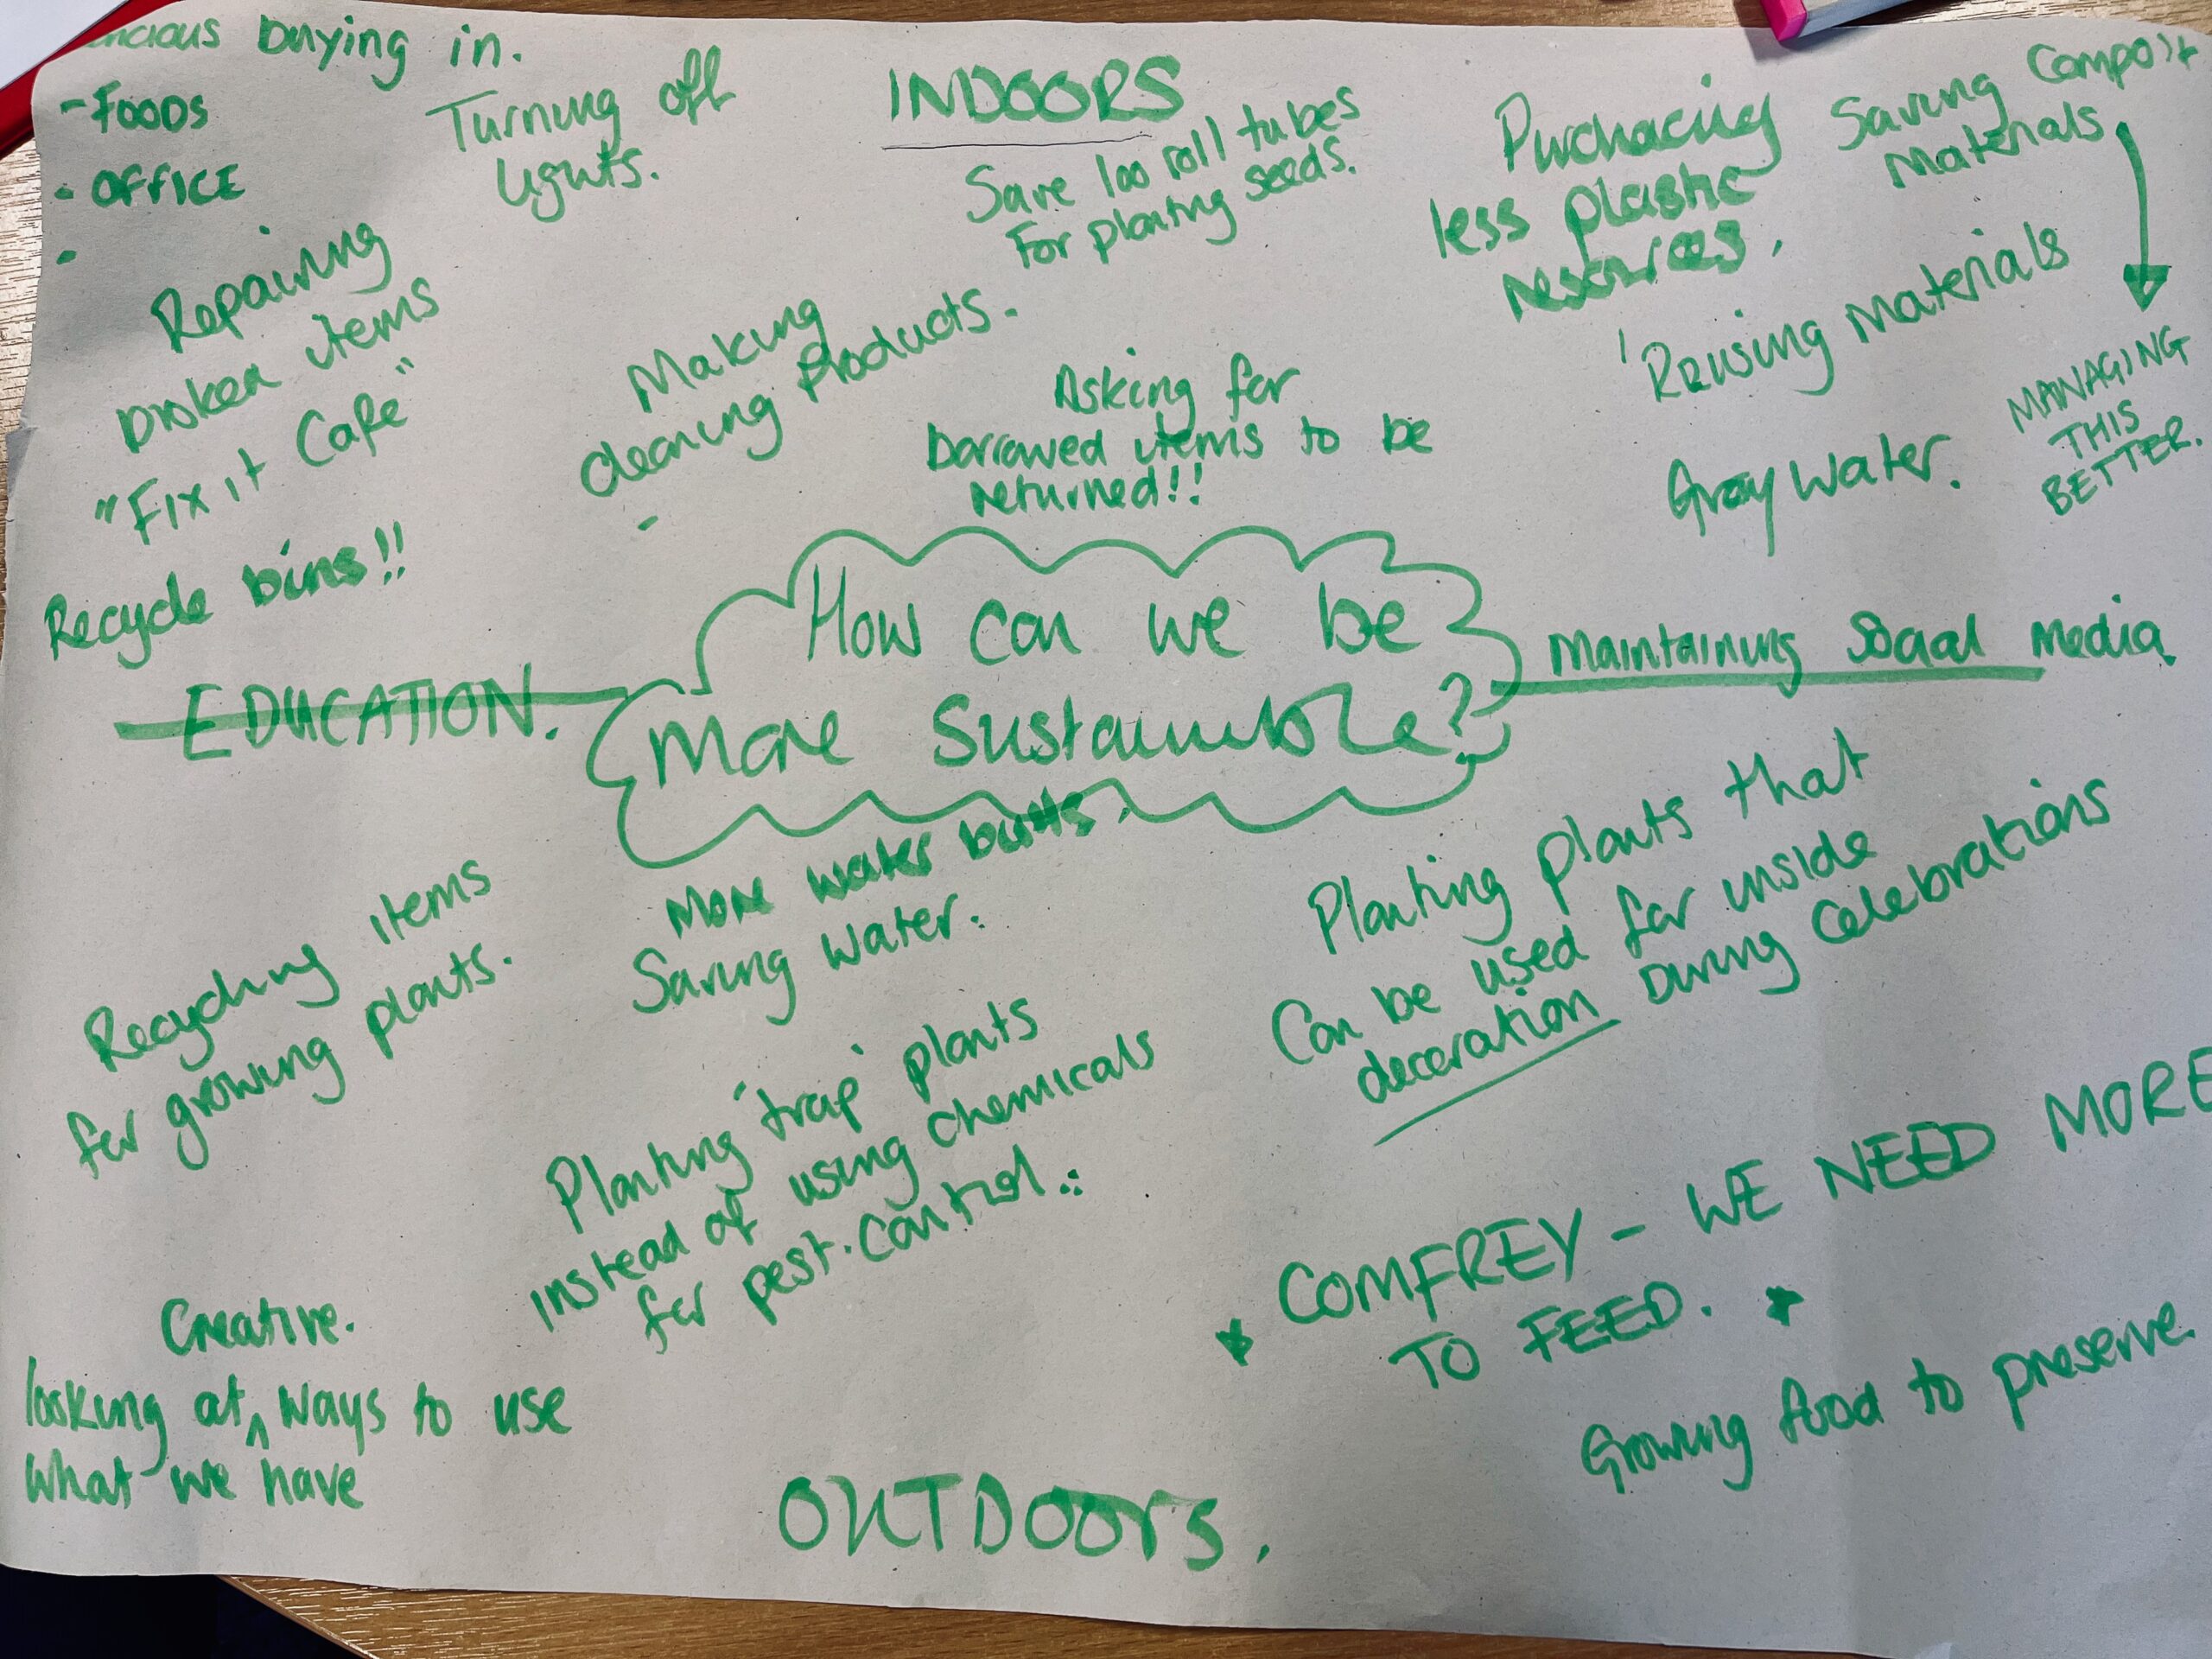 buying in.
- FOODS
- OFFICE
Turning off
lights.
INDOORS
Save loo roll tubes
For planting seeds.
Purchacing
less plastic
resources.
Saving Compost
Materials
MANAGING
THIS
BETTER.
Repairing
broken items
"Fix it Cafe"
Making
cleaning products.
Asking for
borrowed items to be
returned!!
'Reusing Materials
Gray water.
Recycle bins!!
How can we be
more Sustainable?
EDUCATION.
Maintaining Social Media.
More water butts.
Saving water.
Recycling items
for growing plants.
Planting 'trap' plants
instead of using chemicals
for pest control.
Planting plants that
Can be used for inside
decoration During Celebrations
* COMFREY - WE NEED MORE
TO FEED. *
Growing food to preserve.
Creative.
looking at ^ ways to use
what we have
OUTDOORS.